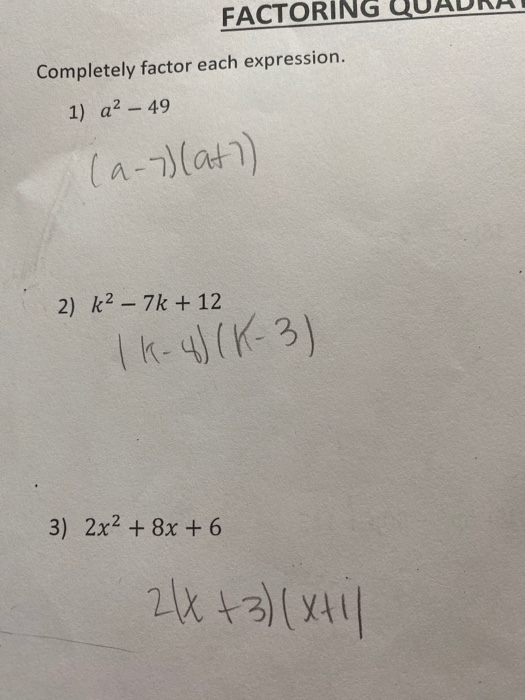 FACTORING QUADRAT
Completely factor each expression.
1) a² – 49
(a-7)(a+7)
2) k² – 7k + 12
(k-4)(k-3)
3) 2x² + 8x + 6
2(x+3)(x+1)